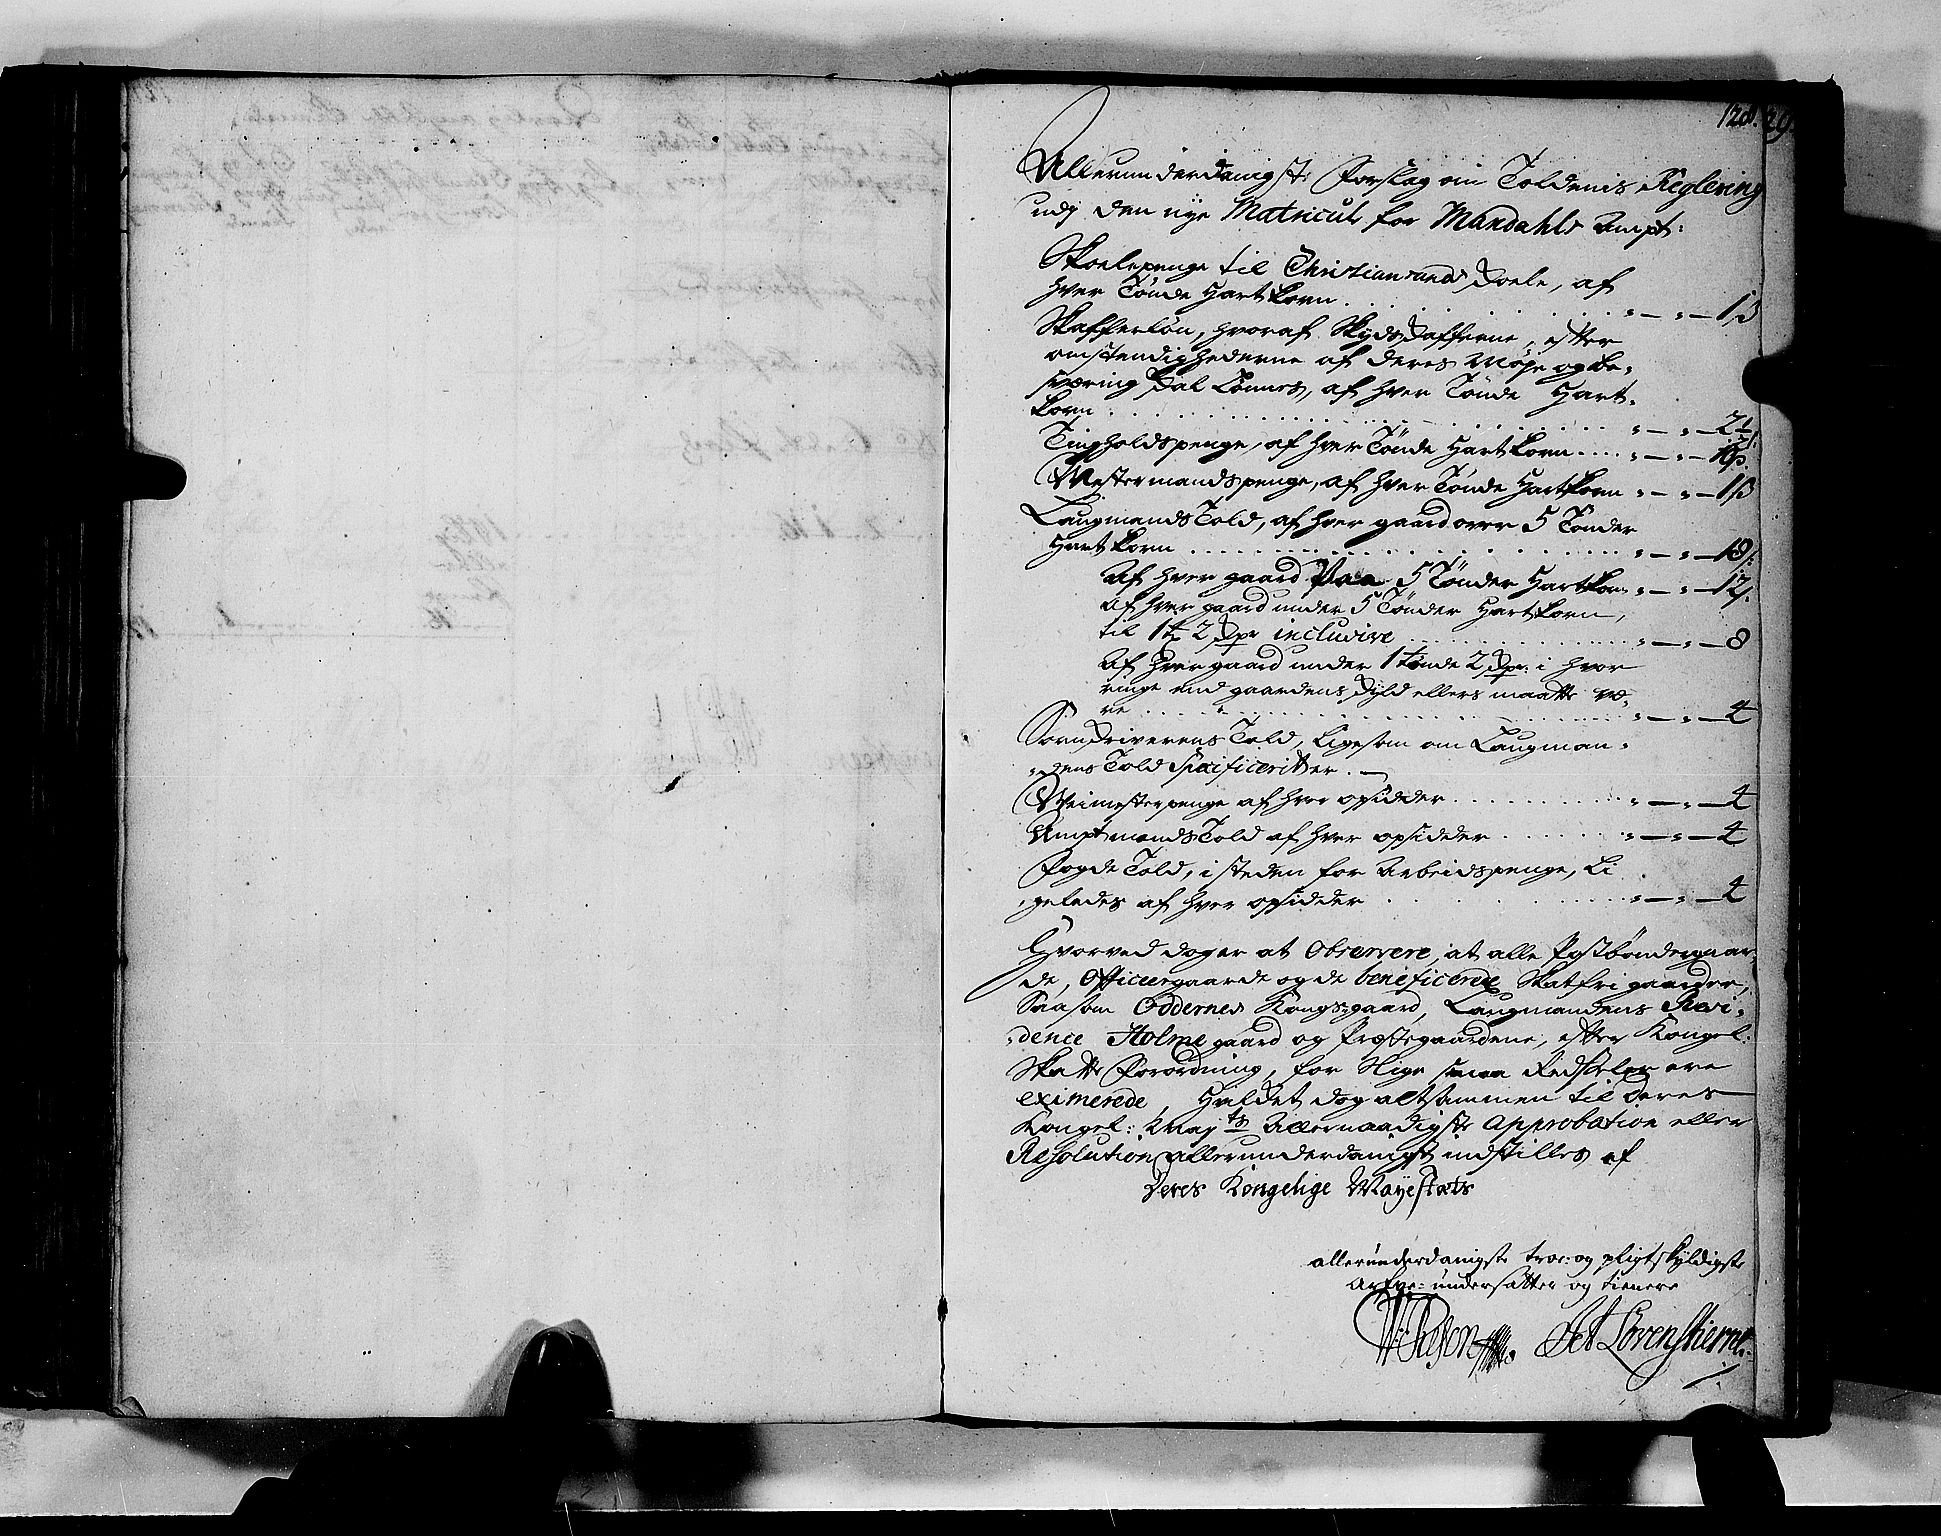 128. 29.
Allerunderdanigste Forslag om Toldenis Reglering
udj den nye Matricul for Mandahls Ampt:
Skoelepenge til Christiansands Skoele, af
hver Tønde Hartkorn . . . . . . . . „ — „ — 1β
Skafferløn, hvoraf Skydsskafferne, efter
omstendighederne af deres Møje og be-
sværing skal Lønnes, af hver Tønde Hart-
korn . . . . . . . . „ — „ — 2½
Tingholdspenge, af hver Tønde Hartkorn . . . . „ — „ —
Westermandspenge, af hver Tønde Hartkorn „ — „ — 1β
Laugmands Told, af hver gaard over 5 Tønder
Hartkorn . . . . . . . . „ — „ — 18/:
Af hver gaard Paa 5 Tønder Hartkorn „ — „ — 12/.
Af hver gaard under 5 Tønder Hartkorn,
til 1 tr 2 Skpr inclusive . . . . . . „ — „ — 8
Af hver gaard under 1 tønde 2 Skpr: i hvor
ringe end gaardens Skyld ellers maatte væ-
re . . . . . . . . „ — „ — 4
Sorenskriverens Told, Ligesom om Laugman-
dens Told Specificeritt er. —
Weimesterpenge af hver opsidder . . . . . . „ — „ — 4
Amptmands Told af hver opsidder . . . . . „ — „ — 4
Fogde Told, i steden for Arbeidspenge, Li
geledes af hver opsidder . . . . . . „ — „ — 4
Hvorved dog er at Observere, at alle Postbøndergaar
de, Officeergaarde og de beneficerede Skatfri gaarder,
Saasom Oddernes Kongsgaard, Laugmandens Resi-
dence Holme gaard og Præstegaardene, efter Kongel:
Skatte Forordning, for slige smaa Redsseler ere
eximerede, Hvilket dog altsammen til Deres
Kongel: May ts Allernaadigste Approbation eller
Resolution allerunderdanigst indstilles af
Deres Kongelige Mayestæts
allerunderdanigste troe- og pligtskyldigste
Arfve: undersåtter og tienere
Lövenskierne.